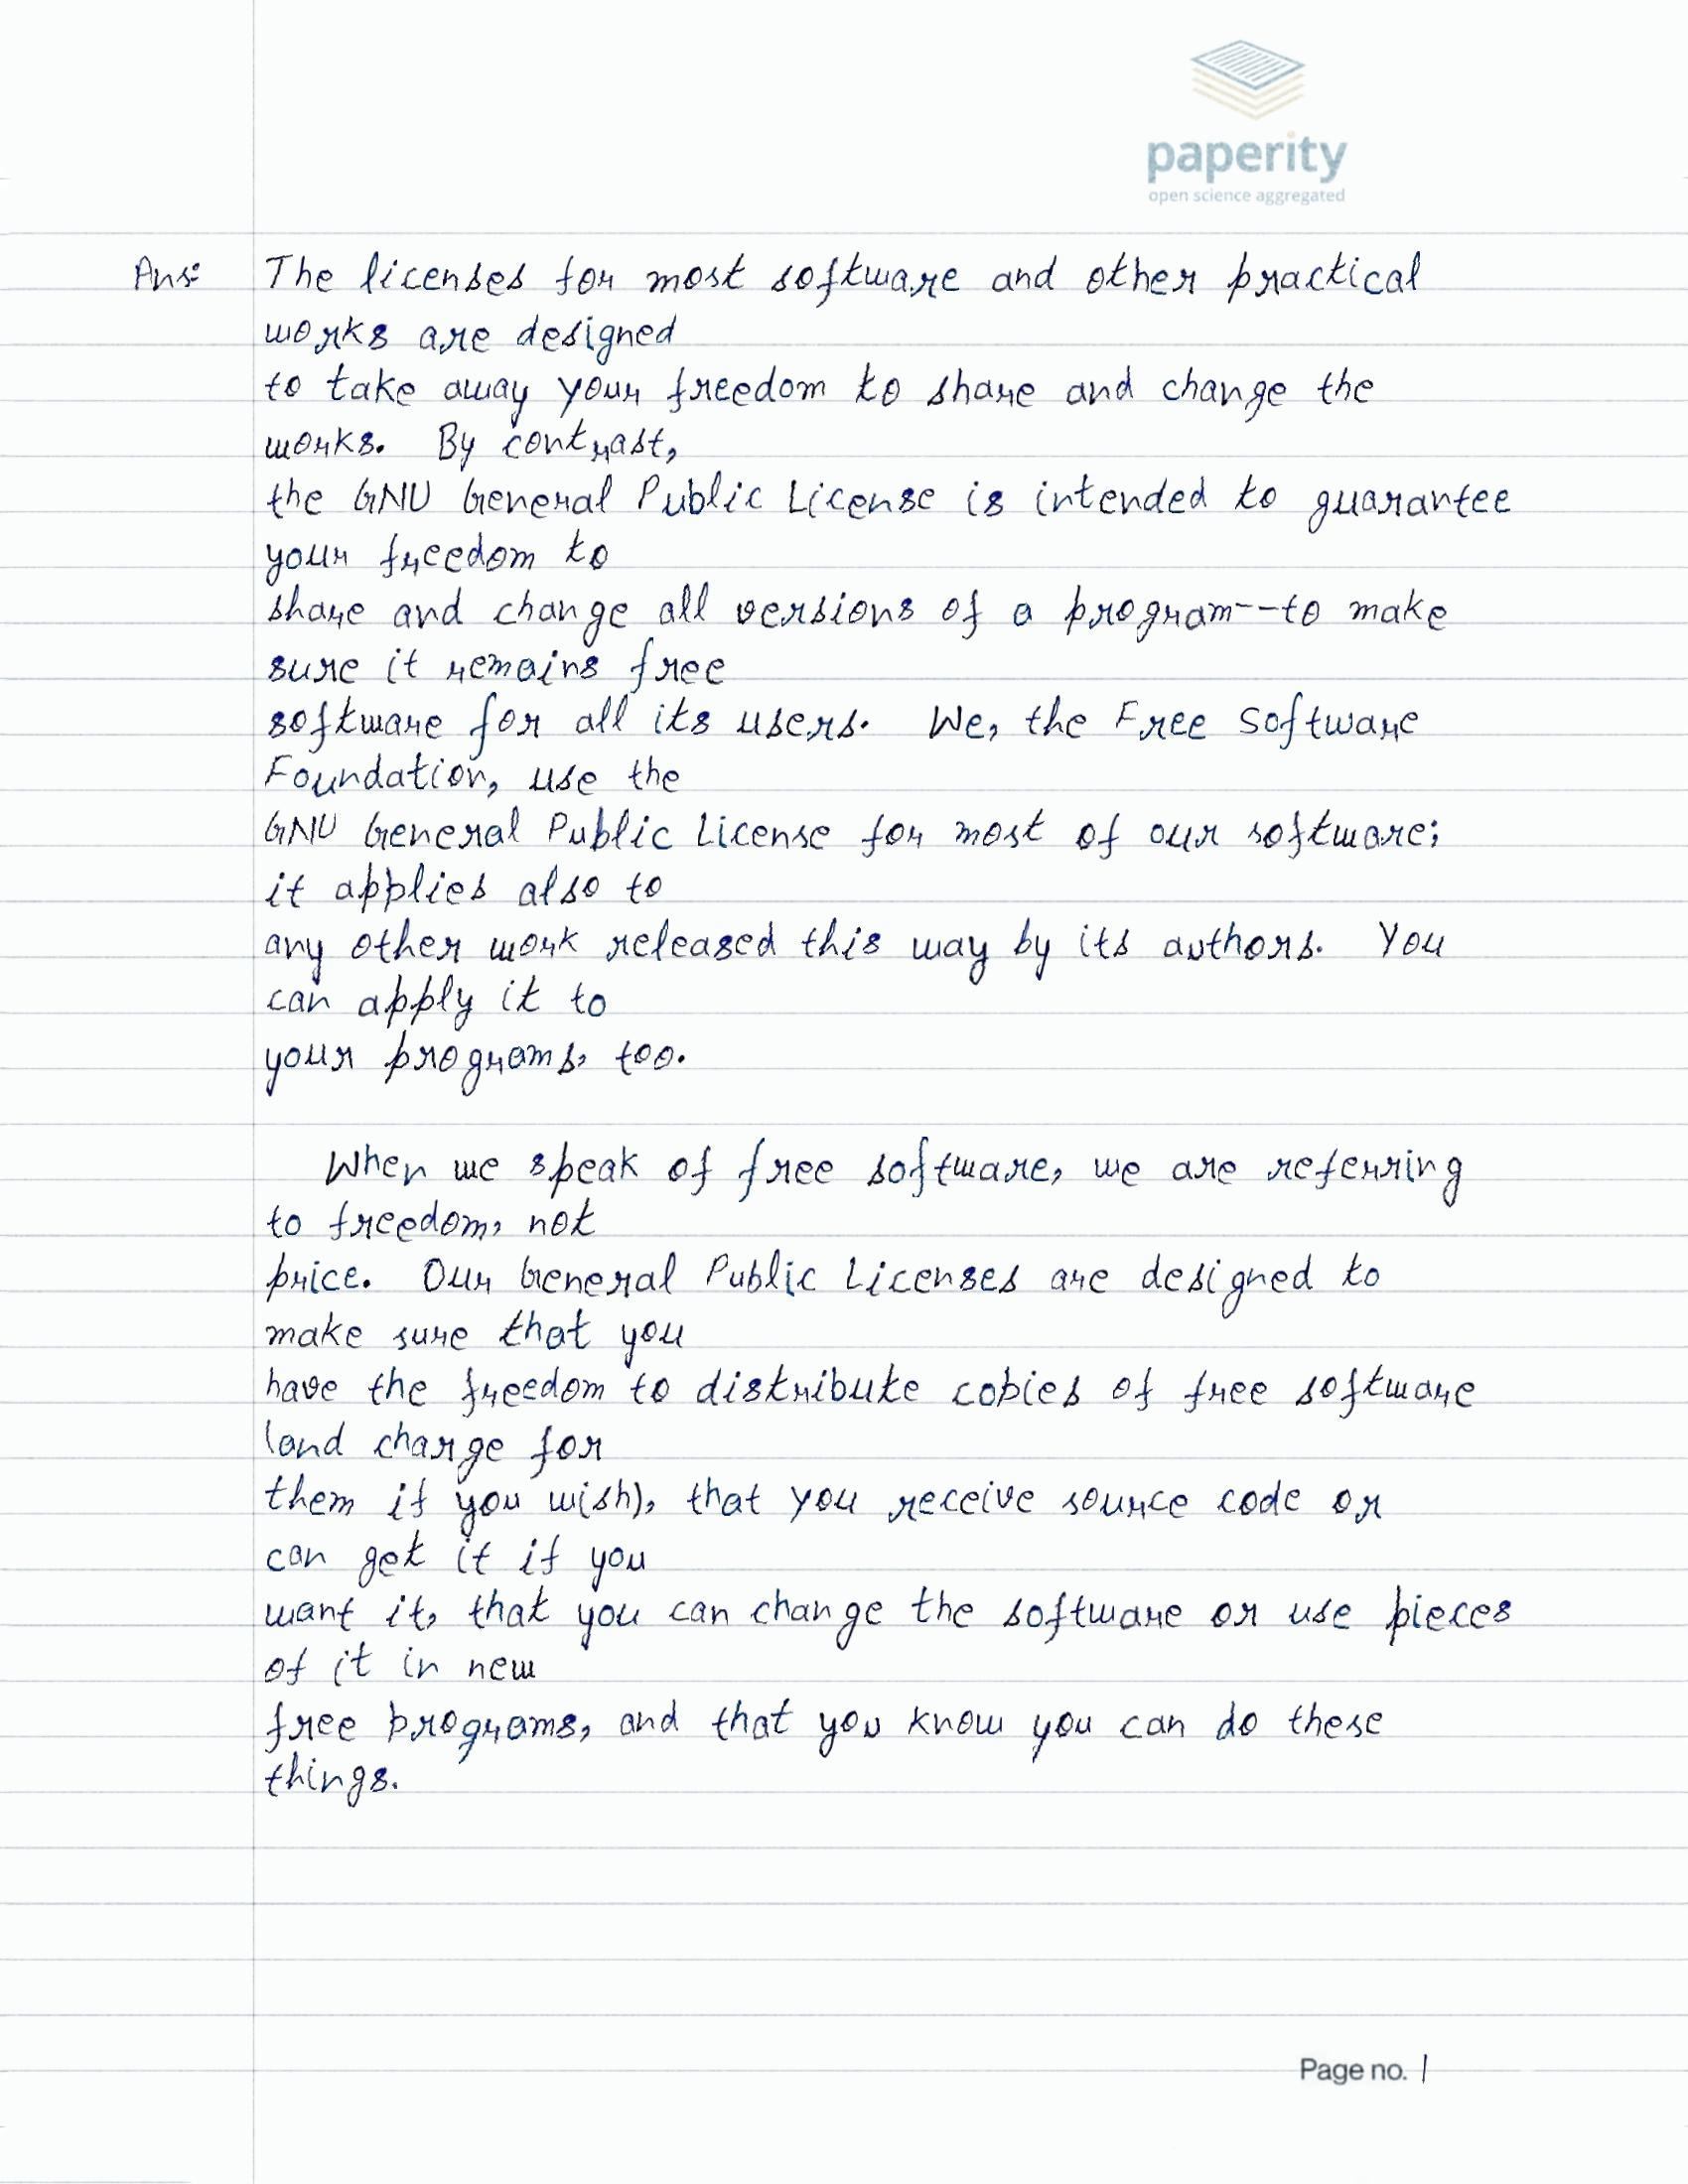 paperity
open science aggregated
Ans: The licenses for most software and other practical
works are designed
to take away your freedom to share and change the
works. By contrast,
the GNU General Public License is intended to guarantee
your freedom to
share and change all versions of a program--to make
sure it remains free
software for all its users. We, the Free Software
Foundation, use the
GNU General Public License for most of our software;
it applies also to
any other work released this way by its authors. You
can apply it to
your programs, too.
When we speak of free software, we are referring
to freedom, not
price. Our General Public Licenses are designed to
make sure that you
have the freedom to distribute copies of free software
(and charge for
them if you wish), that you receive source code or
can get it if you
want it, that you can change the software or use pieces
of it in new
free programs, and that you know you can do these
things.
Page no. 1